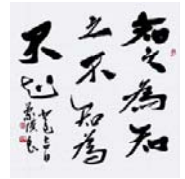 知之為知
之不知為
不知